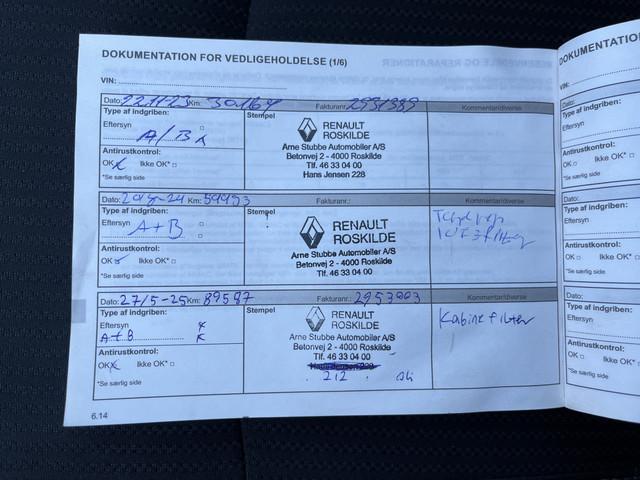 DOKUMENTATION FOR VEDLIGEHOLDELSE (1/6)
VIN:
Dato: 22.11-23 Km: 30164 Fakturanr.: 2931389 Kommentar/diverse
Type af indgriben:
Eftersyn
A/B x
Antirustkontrol:
OK x Ikke OK*
*Se særlig side
Stempel
RENAULT
ROSKILDE
Arne Stubbe Automobiler A/S
Betonvej 2 - 4000 Roskilde
Tlf. 46 33 04 00
Hans Jensen 228
Dato: Km: 59453 Fakturanr.: Kommentar/diverse
Type af indgriben:
Eftersyn
A+B
Antirustkontrol:
OK Ikke OK*
*Se særlig side
Stempel
RENAULT
ROSKILDE
Arne Stubbe Automobiler A/S
Betonvej 2 - 4000 Roskilde
Tlf. 46 33 04 00
Dato: 27/5-25 Km: 89587 Fakturanr.: 2953003 Kommentar/diverse
Type af indgriben:
Eftersyn x
A+B x
Antirustkontrol:
OK x Ikke OK*
*Se særlig side
Stempel
RENAULT
ROSKILDE
Arne Stubbe Automobiler A/S
Betonvej 2 - 4000 Roskilde
Tlf. 46 33 04 00
212
Kabinefilter
6.14
DOKUMENTATIO
VIN:
Dato:
Type af indgriben:
Eftersyn
Antirustkontrol:
OK Ikke OK*
*Se særlig side
Dato:
Type af indgriben:
Eftersyn
Antirustkontrol:
OK Ikke OK*
*Se særlig side
Dato:
Type af indgriben:
Eftersyn
Antirustkontrol:
OK Ikke OK*
*Se særlig side